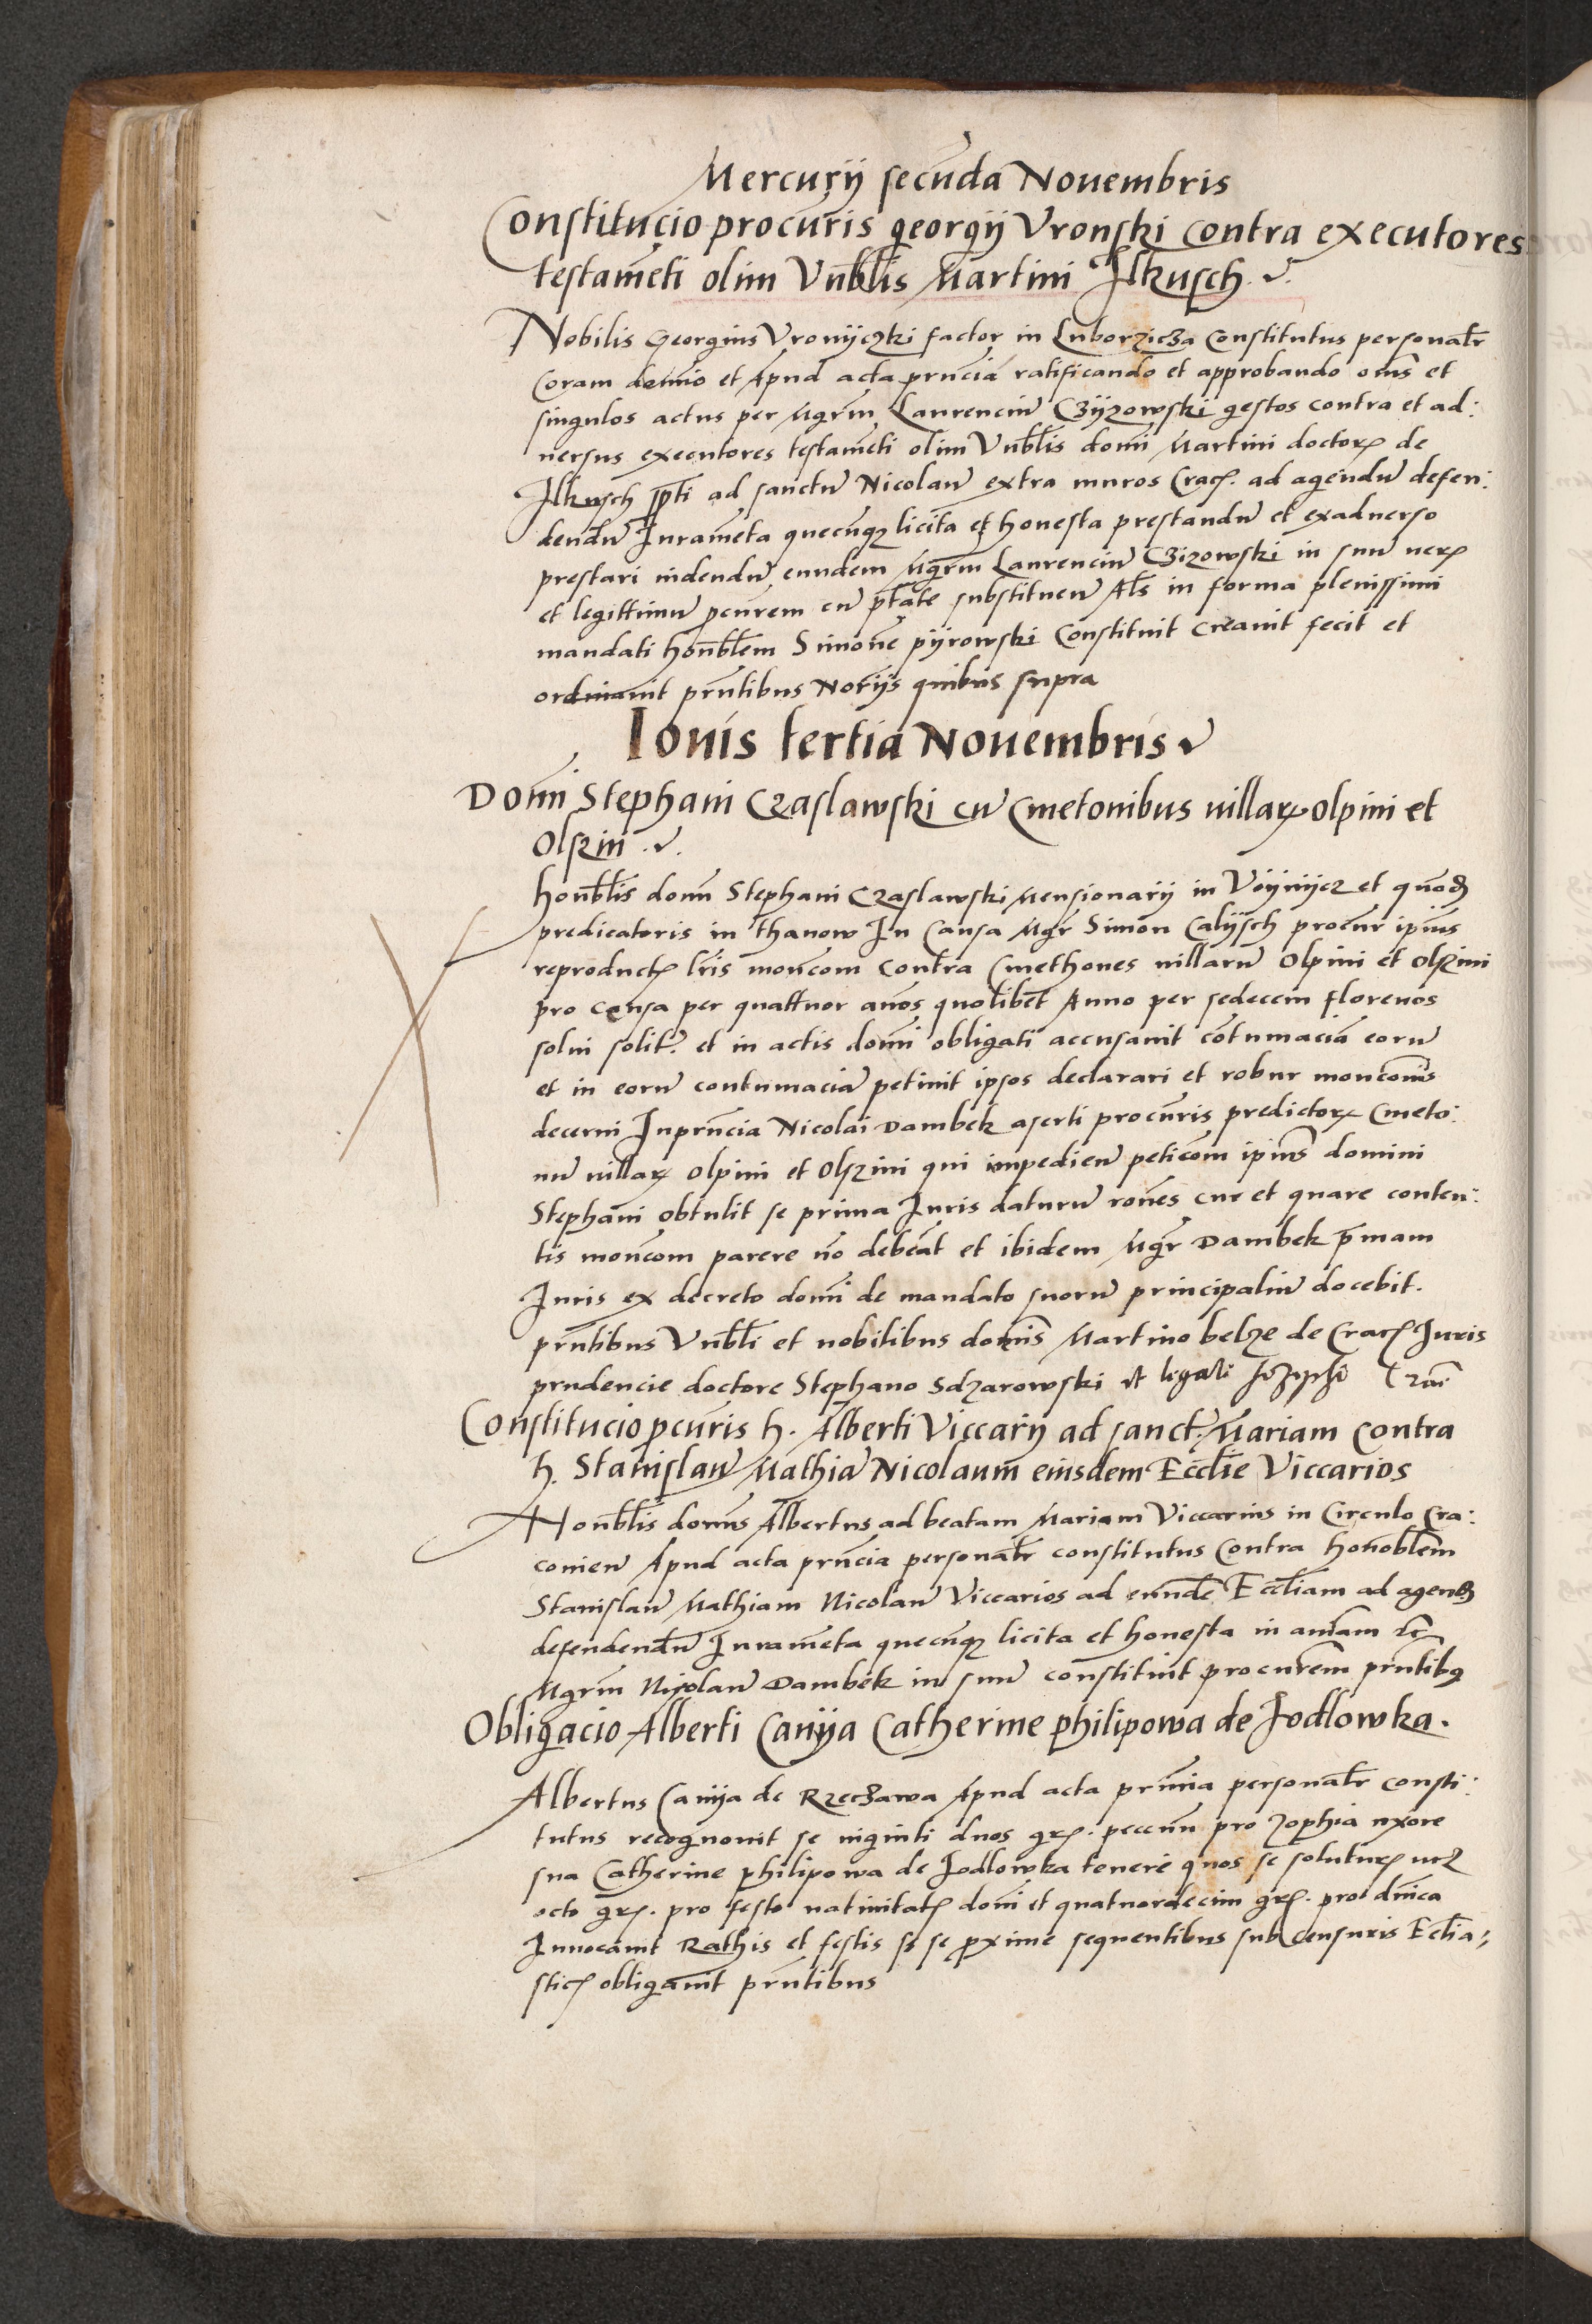 Mercurij secūda Nouembris
Constitucio procūris georgij Vronski contra executores
testamēti olim Vn̄blis Martini Ilkusch
Nobilis Georgius Vronijczki factor in Luborzicza Constitutus personalr̄
Coram domio et Apud acta prn̄cia ratificando et approbando om̄s et
singulos actus per Mgr̄m Laurenciū Czijzowski gestos contra et ad:
uersus executores testamēti olim Vn̄blis domī Martini doctorꝭ de
Ilkusch pp̄ti ad sanctū Nicolaū extra muros Cracꝭ. ad agendū defen:
dendū Iuramēta quecūqꝫ licita et honesta prestandū et exaduerso
prestari uidendū eundem Mgr̄m Laurenciū Czizowski in suū uerꝭ
et legittimū ꝓcūrem cū ptāte substituen̄ Als̄ in forma plenissimi
mandati hon̄blem Simonē pijrowski Constituit creauit fecit et
ordinauit prn̄tibus Norijs quibus supra
Iouis tertia Nouembris
Domī Stephani Czaslawski cū Cmetonibus uillarꝝ olpini et
Olszini
hon̄blis domī Stephani Czaslawski Mensionarij in Voijnijcz et quōdā
predicatoris in thanow In Causa Mgr̄ Simon Calijsch procūr ipius
reproductꝭ lr̄is monc̄om Contra Cmethones uillarū Olpini et Olszini
pro censa per quattuor annos quolibet Anno per sedecem florenos
solui solitꝭ et in actis domī obligati accusauit cōtumaciā eorū
et in eorū contumaciā petiuit ipsos declarari et robur monc̄onis
decerni Inprn̄cia Nicolai Dambek aserti procūris predictorꝝ Cmeto:
nū uillarꝝ Olpini et Olszini qui impedien̄ petic̄om ipius domini
Stephani obtulit se prima Iuris daturū rōnes cur et quare conten:
tis monc̄om parere nō debeāt et ibidem Mgr̄ Dambek p̄mam
Iuris ex decreto domī de mandato suorū principaliū docebit.
prn̄tibus Vn̄bli et nobilibus domīs Martino belze de Cracꝭ Iuris
prudencie doctore Stephano Sdzarowski et
Constitucio ꝓcūris h. Alberti Viccarij ad sanct. Mariam Contra
h. Stanislaū Mathiā Nicolaum eiusdem Eccl̄ie Viccarios
Hon̄blis domn̄s Albertus ad beatam Mariam Viccarius in Circulo Cra:
couien̄ Apud acta prn̄cia personalr̄ constitutus Contra honoblem
Stanislaū Mathiam Nicolaū Viccarios ad eundē Eccl̄iam ad agendū
defendendū Iuramēta quecūqꝫ licita et honesta in animam etc̄
Mgr̄m Nicolaū Dambek in suū constituit procurem̄ prn̄tibꝰ
Obligacio Alberti Canija Catherine philipowa de Jodlowka.
Albertus Canija de Rzeczawa Apud acta prn̄cia personalr̄ consti:
tutus recognouit se uiginti duos grꝭ. peccun̄ pro Zophia uxore
sua Catherine philipowa de Jodlowka teneri quos se soluturꝭ uꝫ
octo grꝭ. pro festo natiuitatꝭ domī et quatuordecim grꝭ. pro dn̄ica
Inuocauit Rathis et festis se ꝓxime sequentibus sub Censuris Ecl̄ia:
sticꝭ obligauit prn̄tibus